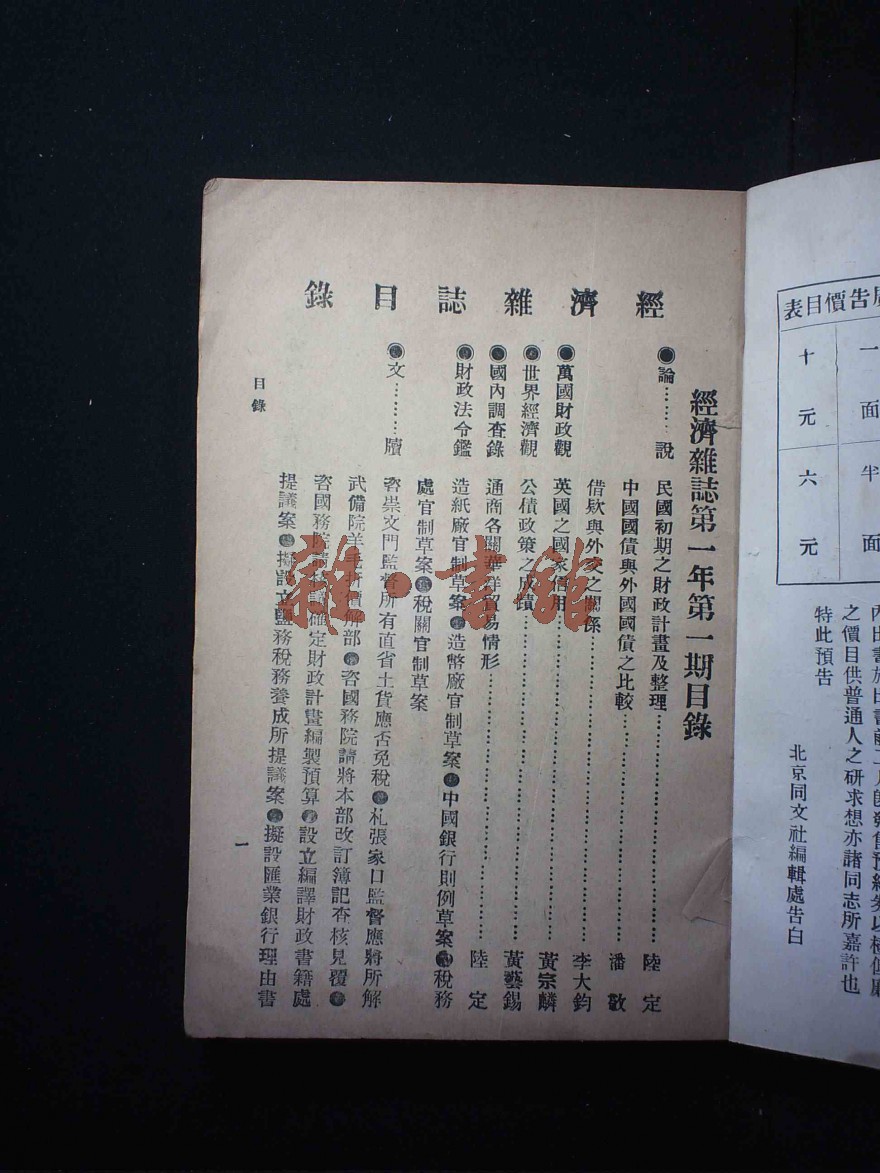 廣告價目表
一面 十元
半面 六元
之價目供普通人之研求想亦諸同志所嘉許也
特此預告
北京同文社編輯處告白
經濟雜誌目錄
經濟雜誌第一年第一期目錄
●論………說 民國初期之財政計畫及整理……陸定
中國國債與外國國債之比較……潘敬
借欵與外交之關係……李大鈞
●萬國財政觀 英國之國家信用……黃宗麟
●世界經濟觀 公債政策之成績……黃藝錫
●國內調查錄 通商各關華洋貿易情形……陸定
●財政法令鑑 造紙廠官制草案●造幣廠官制草案●中國銀行則例草案●稅務
處官制草案●稅關官制草案
●文………牘 咨崇文門監督所有直省土貨應否免稅●札張家口監督應將所解
武備院羊毛折價解部●咨國務院請將本部改訂簿記查核見覆●
咨國務院請核議確定財政計畫編製預算●設立編譯財政書籍處
提議案●擬設立鹽務稅務養成所提議案●擬設匯業銀行理由書
目錄
一
雜·書館